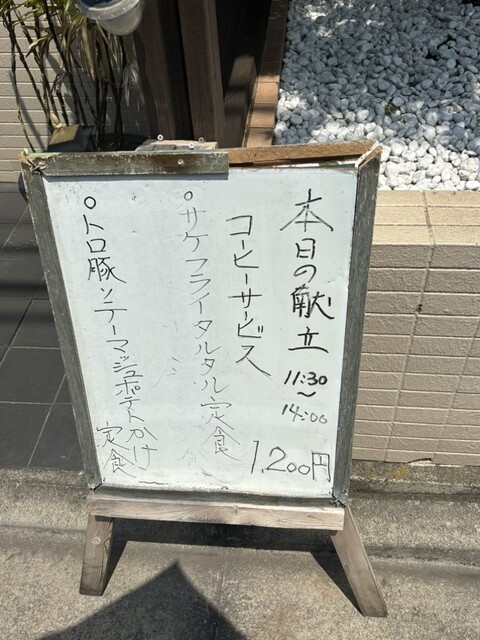 本日の献立
11:30
〜
14:00
コーヒーサービス
1,200円
○サケフライタルタル定食
○トロ豚ソテーマッシュポテトかけ
定食